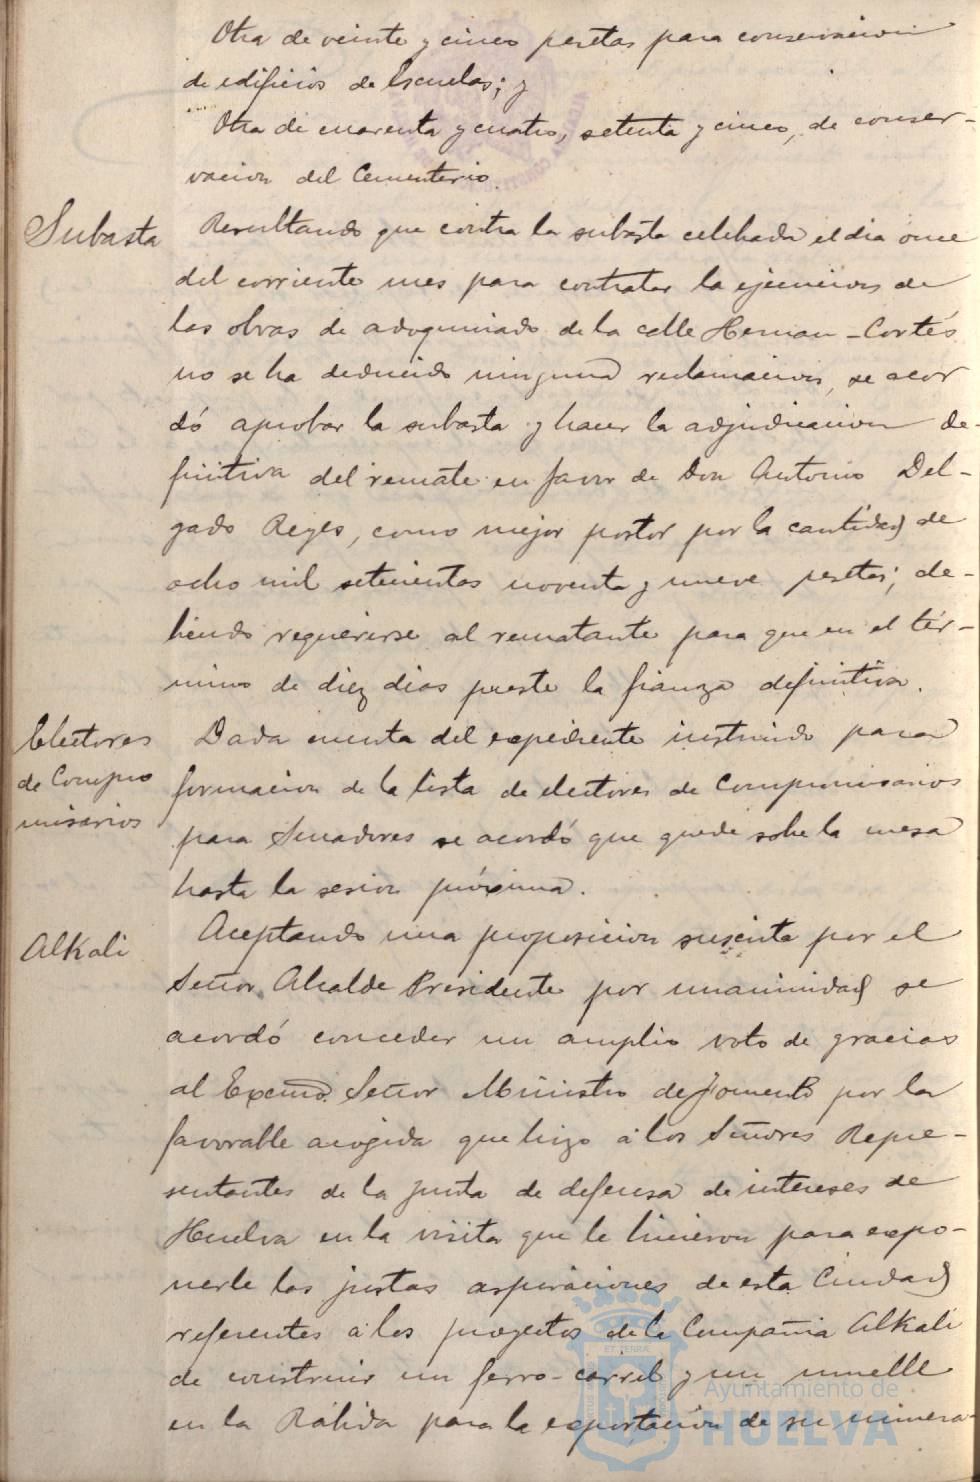 Otra de veinte y cinco pesetas para conservacion
de edificios de Escuelas; y
Otra de cuarenta y cuatro, setenta y cinco, de conser-
vacion del Cementerio.
Subasta
Resultando que contra la subasta celebrada el dia once
del corriente mes para contratar la ejecucion de
las obras de adoquinado de la calle Hernan-Cortés
no se ha deducido ninguna reclamacion, se acor
dó aprobar la subasta y hacer la adjudicacion de-
finitiva del remate en favor de Don Antonio Del-
gado Reyes, como mejor postor por la cantidad de
ocho mil setecientas noventa y nueve pesetas; de-
biendo requerirse al rematante para que en el tér-
mino de diez dias preste la fianza definitiva.
Electores
de Compro
misarios
Dada cuenta del expediente instruido para
formacion de la lista de electores de Compromisarios
para Senadores se acordó que quede sobre la mesa
hasta la sesion próxima.
Alkali
Aceptando una proposicion suscrita por el
Señor Alcalde Presidente por unanimidad se
acordó conceder un amplio voto de gracias
al Excmo. Señor Ministro de Fomento por la
favorable acogida que hizo á los Señores Repre-
sentantes de la junta de defensa de intereses de
Huelva en la visita que le hicieron para expo-
nerle las justas aspiraciones de esta Ciudad
referentes á los proyectos de la Compañia Alkali
de construir un ferro-carril y un muelle
en la Rábida para la exportacion de su minera-
Ayuntamiento de
HUELVA